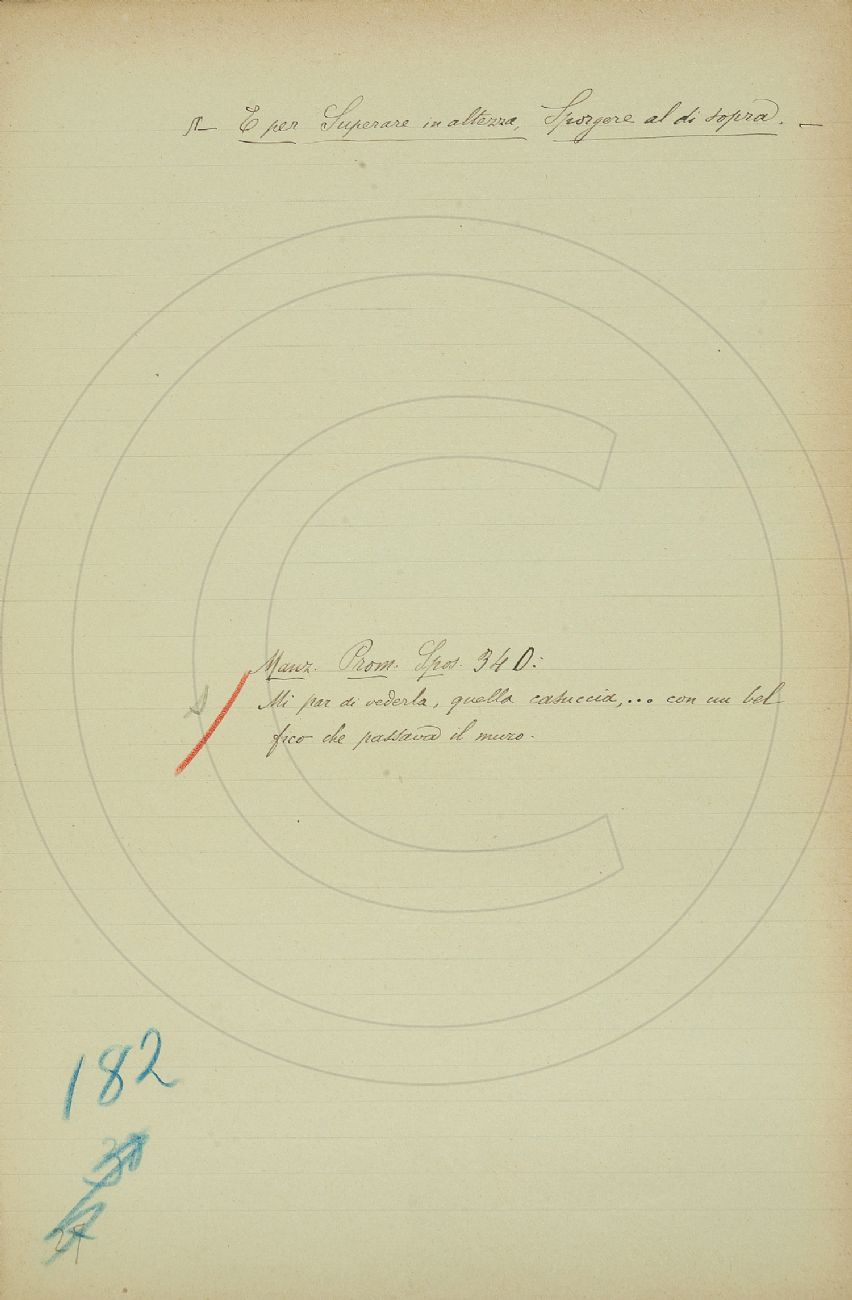 — E per Superare in altezza, Sporgere al di sopra. —
Manz. Prom. Spos. 340:
Mi par di vederla, quella casuccia,... con un bel
fico che passava il muro.
182